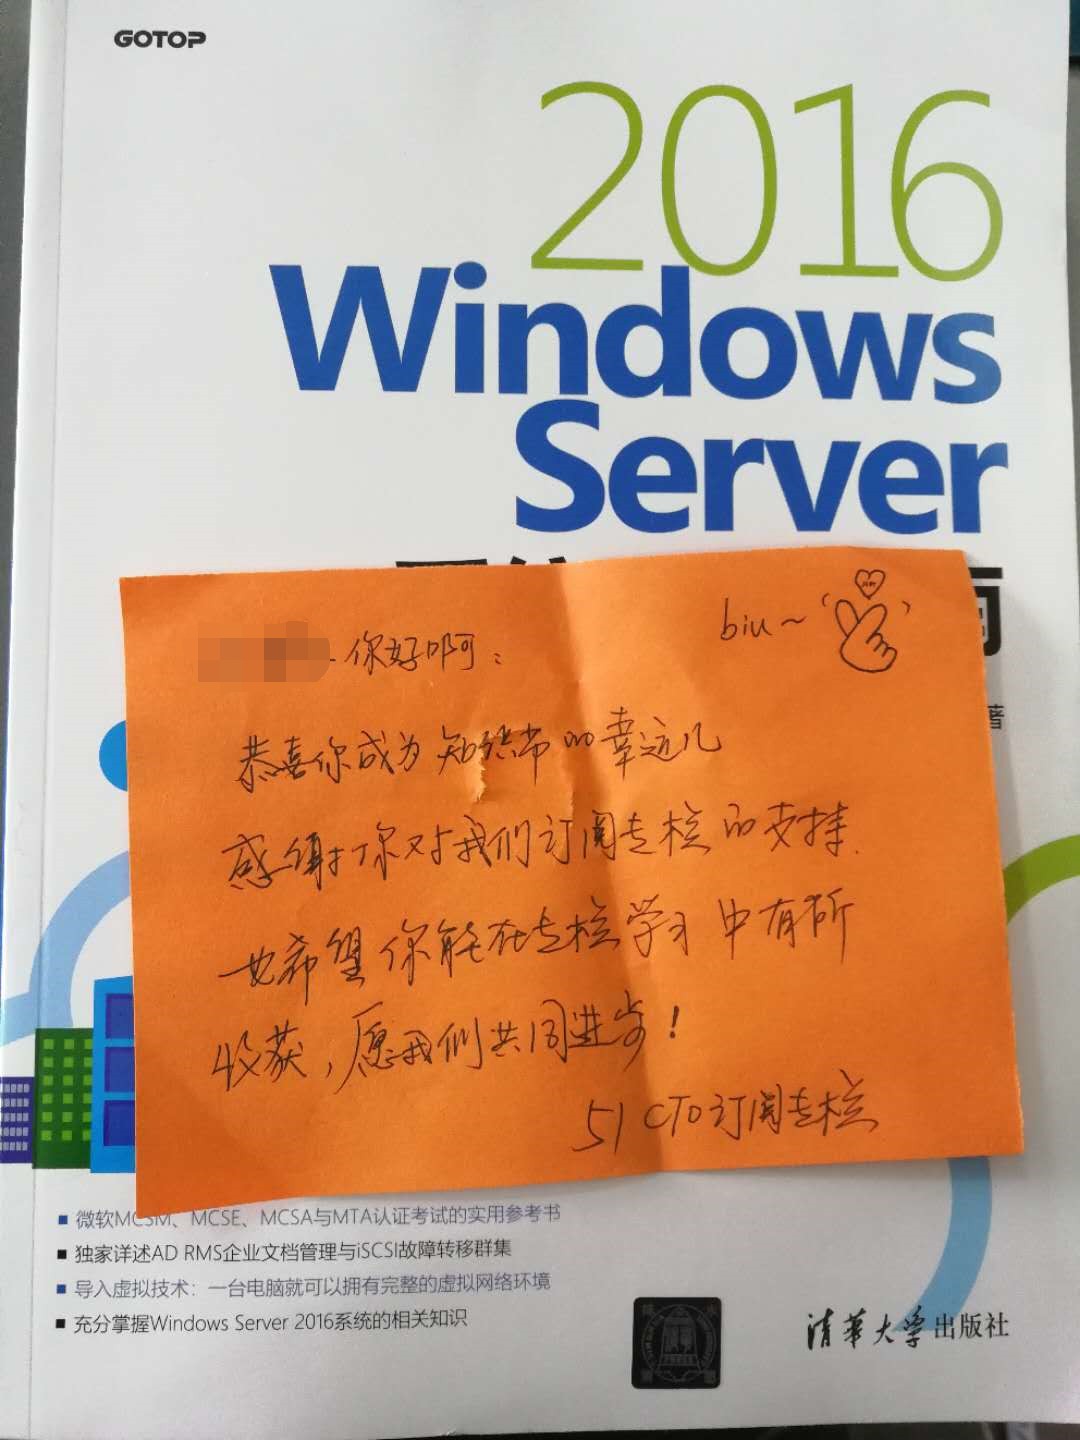 GOTOP
2016
Windows
Server
biu~
你好啊:
恭喜你成为知识节的幸运儿
感谢你对我们订阅专栏的支持.
也希望你能在专栏学习中有所
收获,愿我们共同进步!
51CTO订阅专栏
著
■ 微软MCSM、MCSE、MCSA与MTA认证考试的实用参考书
■ 独家详述AD RMS企业文档管理与iSCSI故障转移群集
■ 导入虚拟技术：一台电脑就可以拥有完整的虚拟网络环境
■ 充分掌握Windows Server 2016系统的相关知识
清华大学出版社